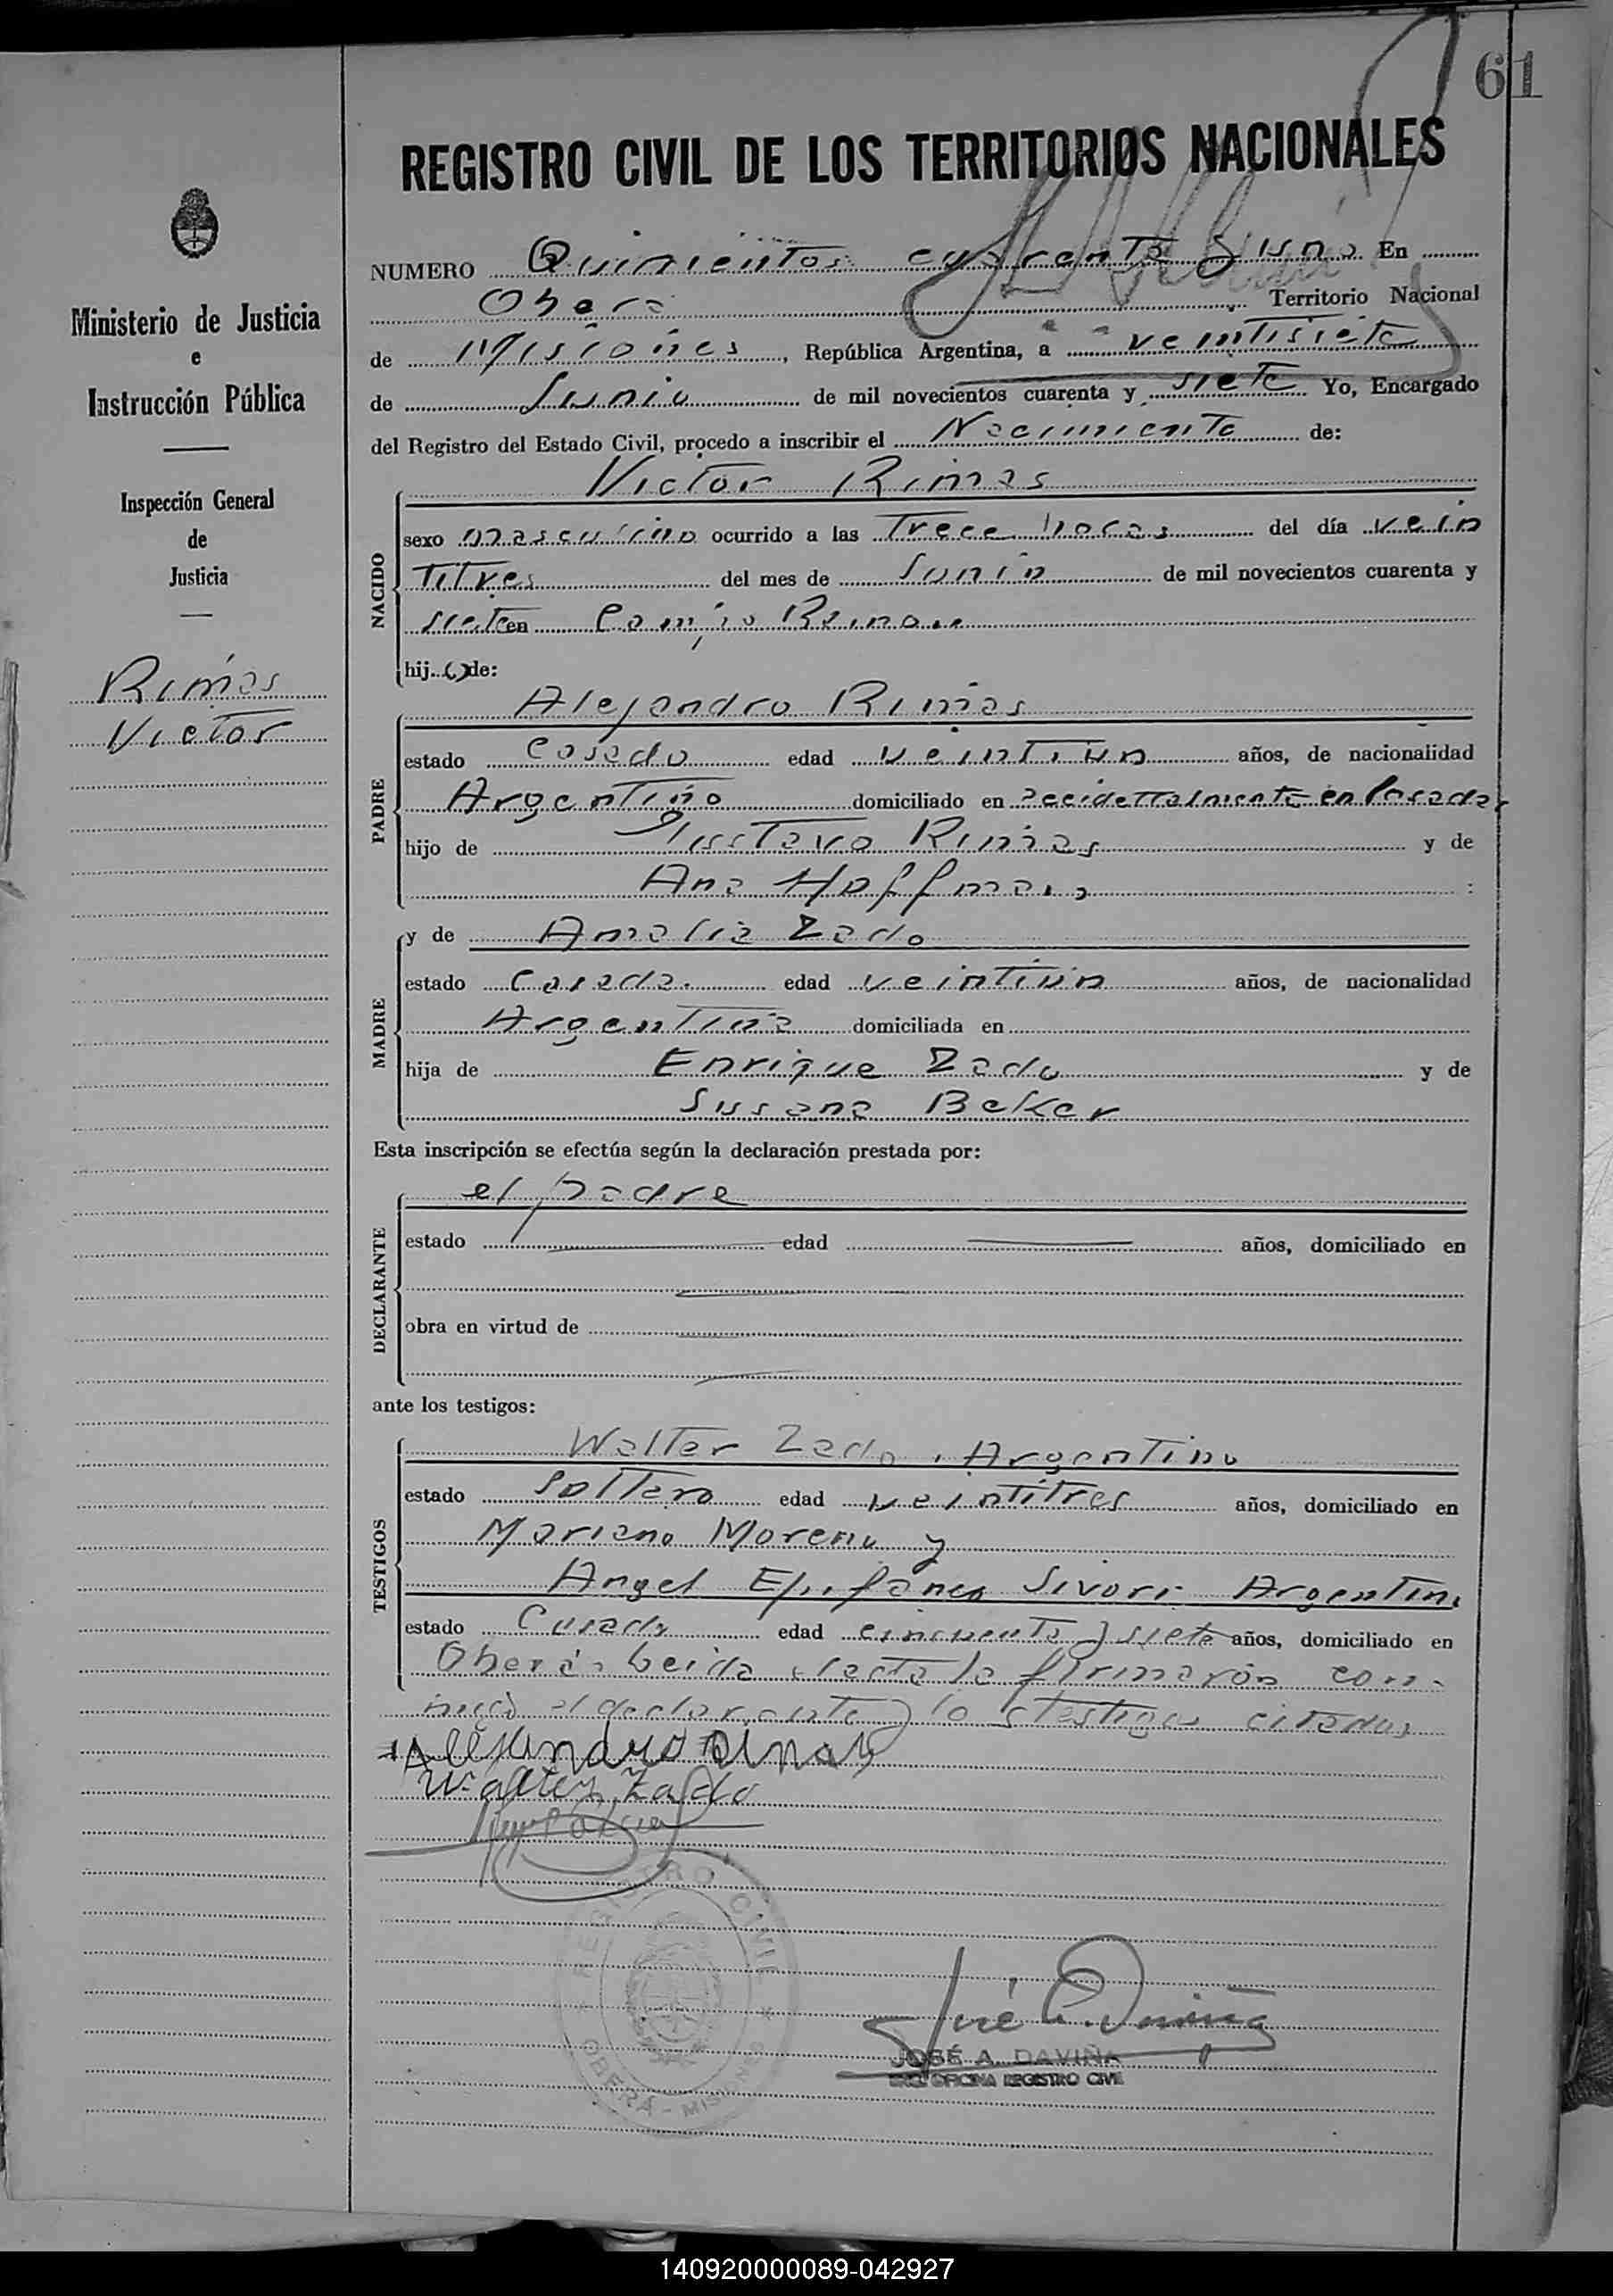 61
REGISTRO CIVIL DE LOS TERRITORIOS NACIONALES
Ministerio de Justicia
e
Instrucción Pública
Inspección General
de
Justicia
Rimas
Victor
NUMERO Quinientos cuarenta y uno En
Oberá Territorio Nacional
de Misiones, República Argentina, a veintisiete
de Junio de mil novecientos cuarenta y siete Yo, Encargado
del Registro del Estado Civil, procedo a inscribir el Nacimiento de:
NACIDO
Victor Rimas
sexo masculino ocurrido a las Trece horas del día vein
titres del mes de Junio de mil novecientos cuarenta y
siete en Campo
hij o de:
PADRE
Alejandro Rimas
estado Casado edad veintiun años, de nacionalidad
Argentino domiciliado en accidettalmente en Posadas
hijo de Gustavo Rimas y de
Ana Hoffman
MADRE
y de Amalia Zado
estado Casada edad veintiun años, de nacionalidad
Argentina domiciliada en
hija de Enrique Zado y de
Susana Beker
Esta inscripción se efectúa según la declaración prestada por:
DECLARANTE
el padre
estado edad años, domiciliado en
obra en virtud de
ante los testigos:
TESTIGOS
Walter Zado, Argentino
estado Soltero edad veintitres años, domiciliado en
Mariano Moreno y
Angel Epifaneo Sivori Argentino
estado Casado edad cincuenta y siete años, domiciliado en
Oberá Leida el acta la firmaron con
migo el declarante y los testigos citados
Walter Zado
REGISTRO CIVIL
OBERÁ - MISIONES
José A. Daviña
JOSÉ A. DAVIÑA
ENC. OFICINA REGISTRO CIVIL
140920000089-042927